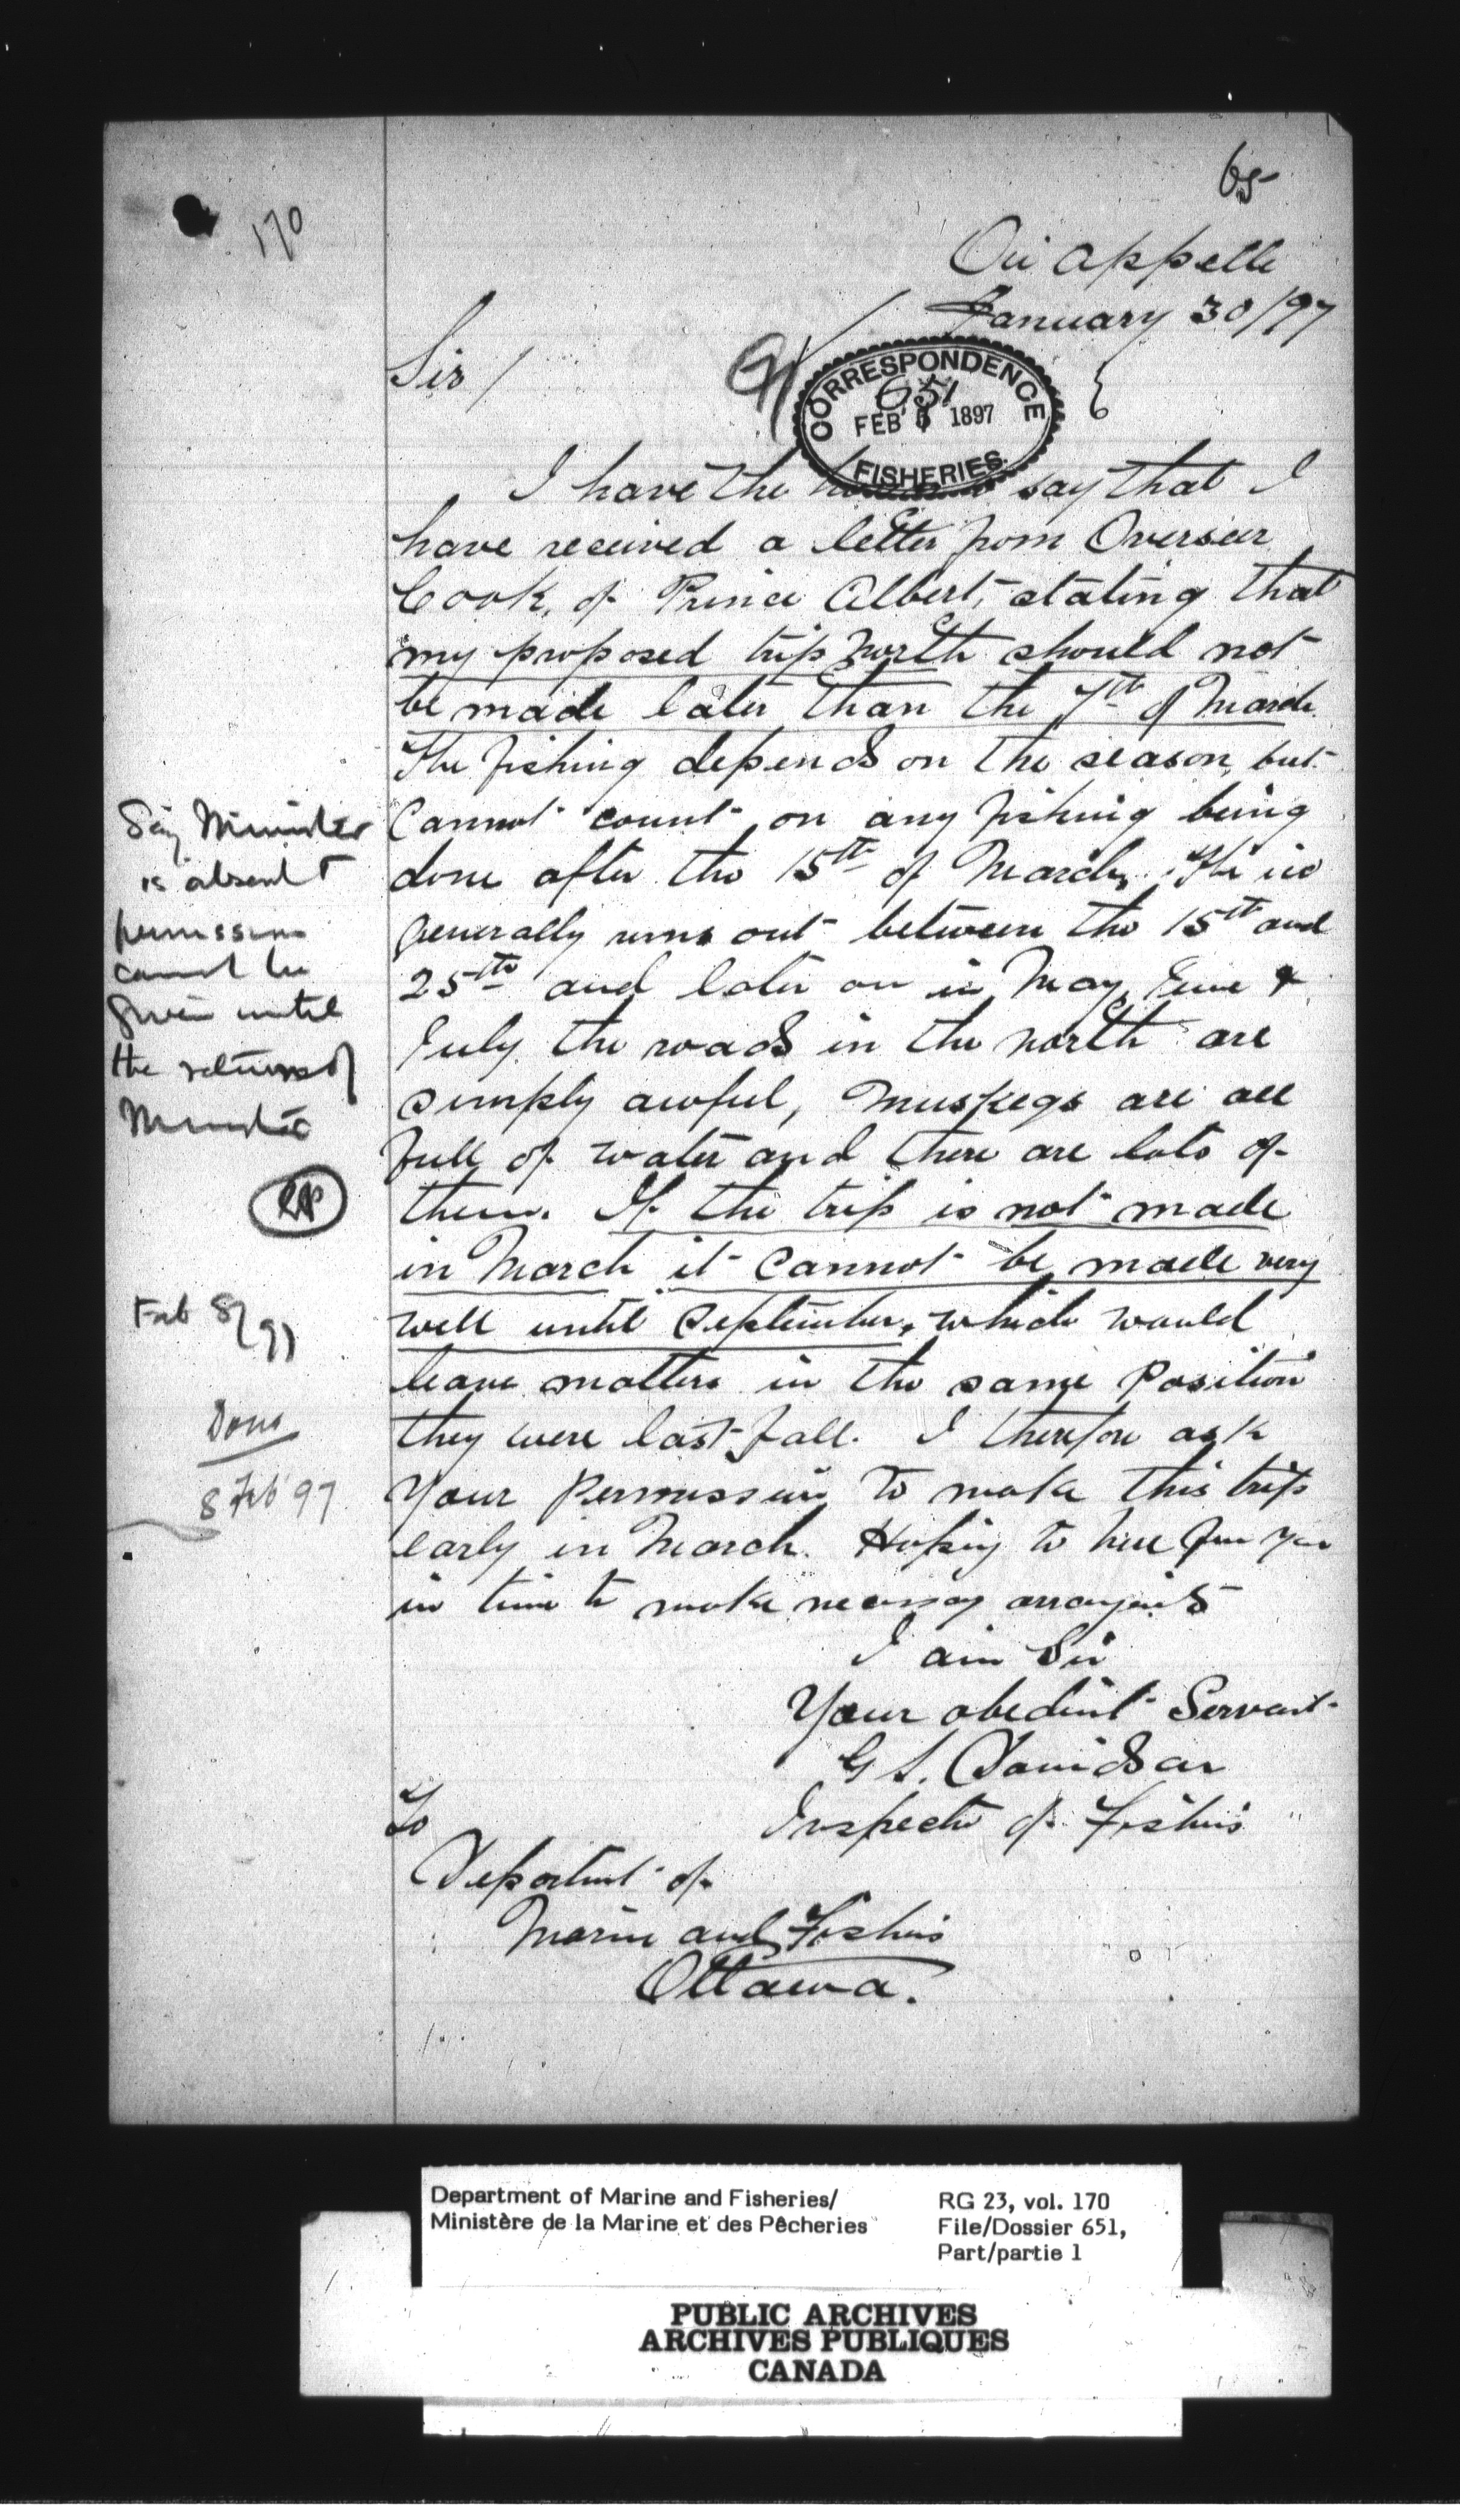 65
170
Qu'Appelle
January 30/97
Sir/
CORRESPONDENCE
651
FEB 5 1897
FISHERIES.
I have the say that I
have received a letter from Overseer
Cook, of Prince Albert, stating that
my proposed trip North should not
be made later than the 7th of March.
The fishing depends on the season, but
Cannot count on any fishing being
done after the 15th of March. The ice
generally runs out between the 15th and
25th and later on in May, June &
July the roads in the north are
simply awful, Muskegs are all
full of water and there are lots of
them. If the trip is not made
in March it cannot be made very
well until September, which would
leave matters in the same position
they were last Fall. I therefore ask
Your Permission to make this trip
early in March. Hoping to hear from you
in time to make necessary arrangements
I am Sir
Your obedient Servant
G S. Davidson
Inspector of Fisheries
To
Department of
Marine and Fisheries
Ottawa.
Say Minister
is absent
permission
cannot be
given until
the return of
Minister
Feb 8/97
Done
8 Feb 97
Department of Marine and Fisheries/
Ministère de la Marine et des Pêcheries
RG 23, vol. 170
File/Dossier 651,
Part/partie 1
PUBLIC ARCHIVES
ARCHIVES PUBLIQUES
CANADA